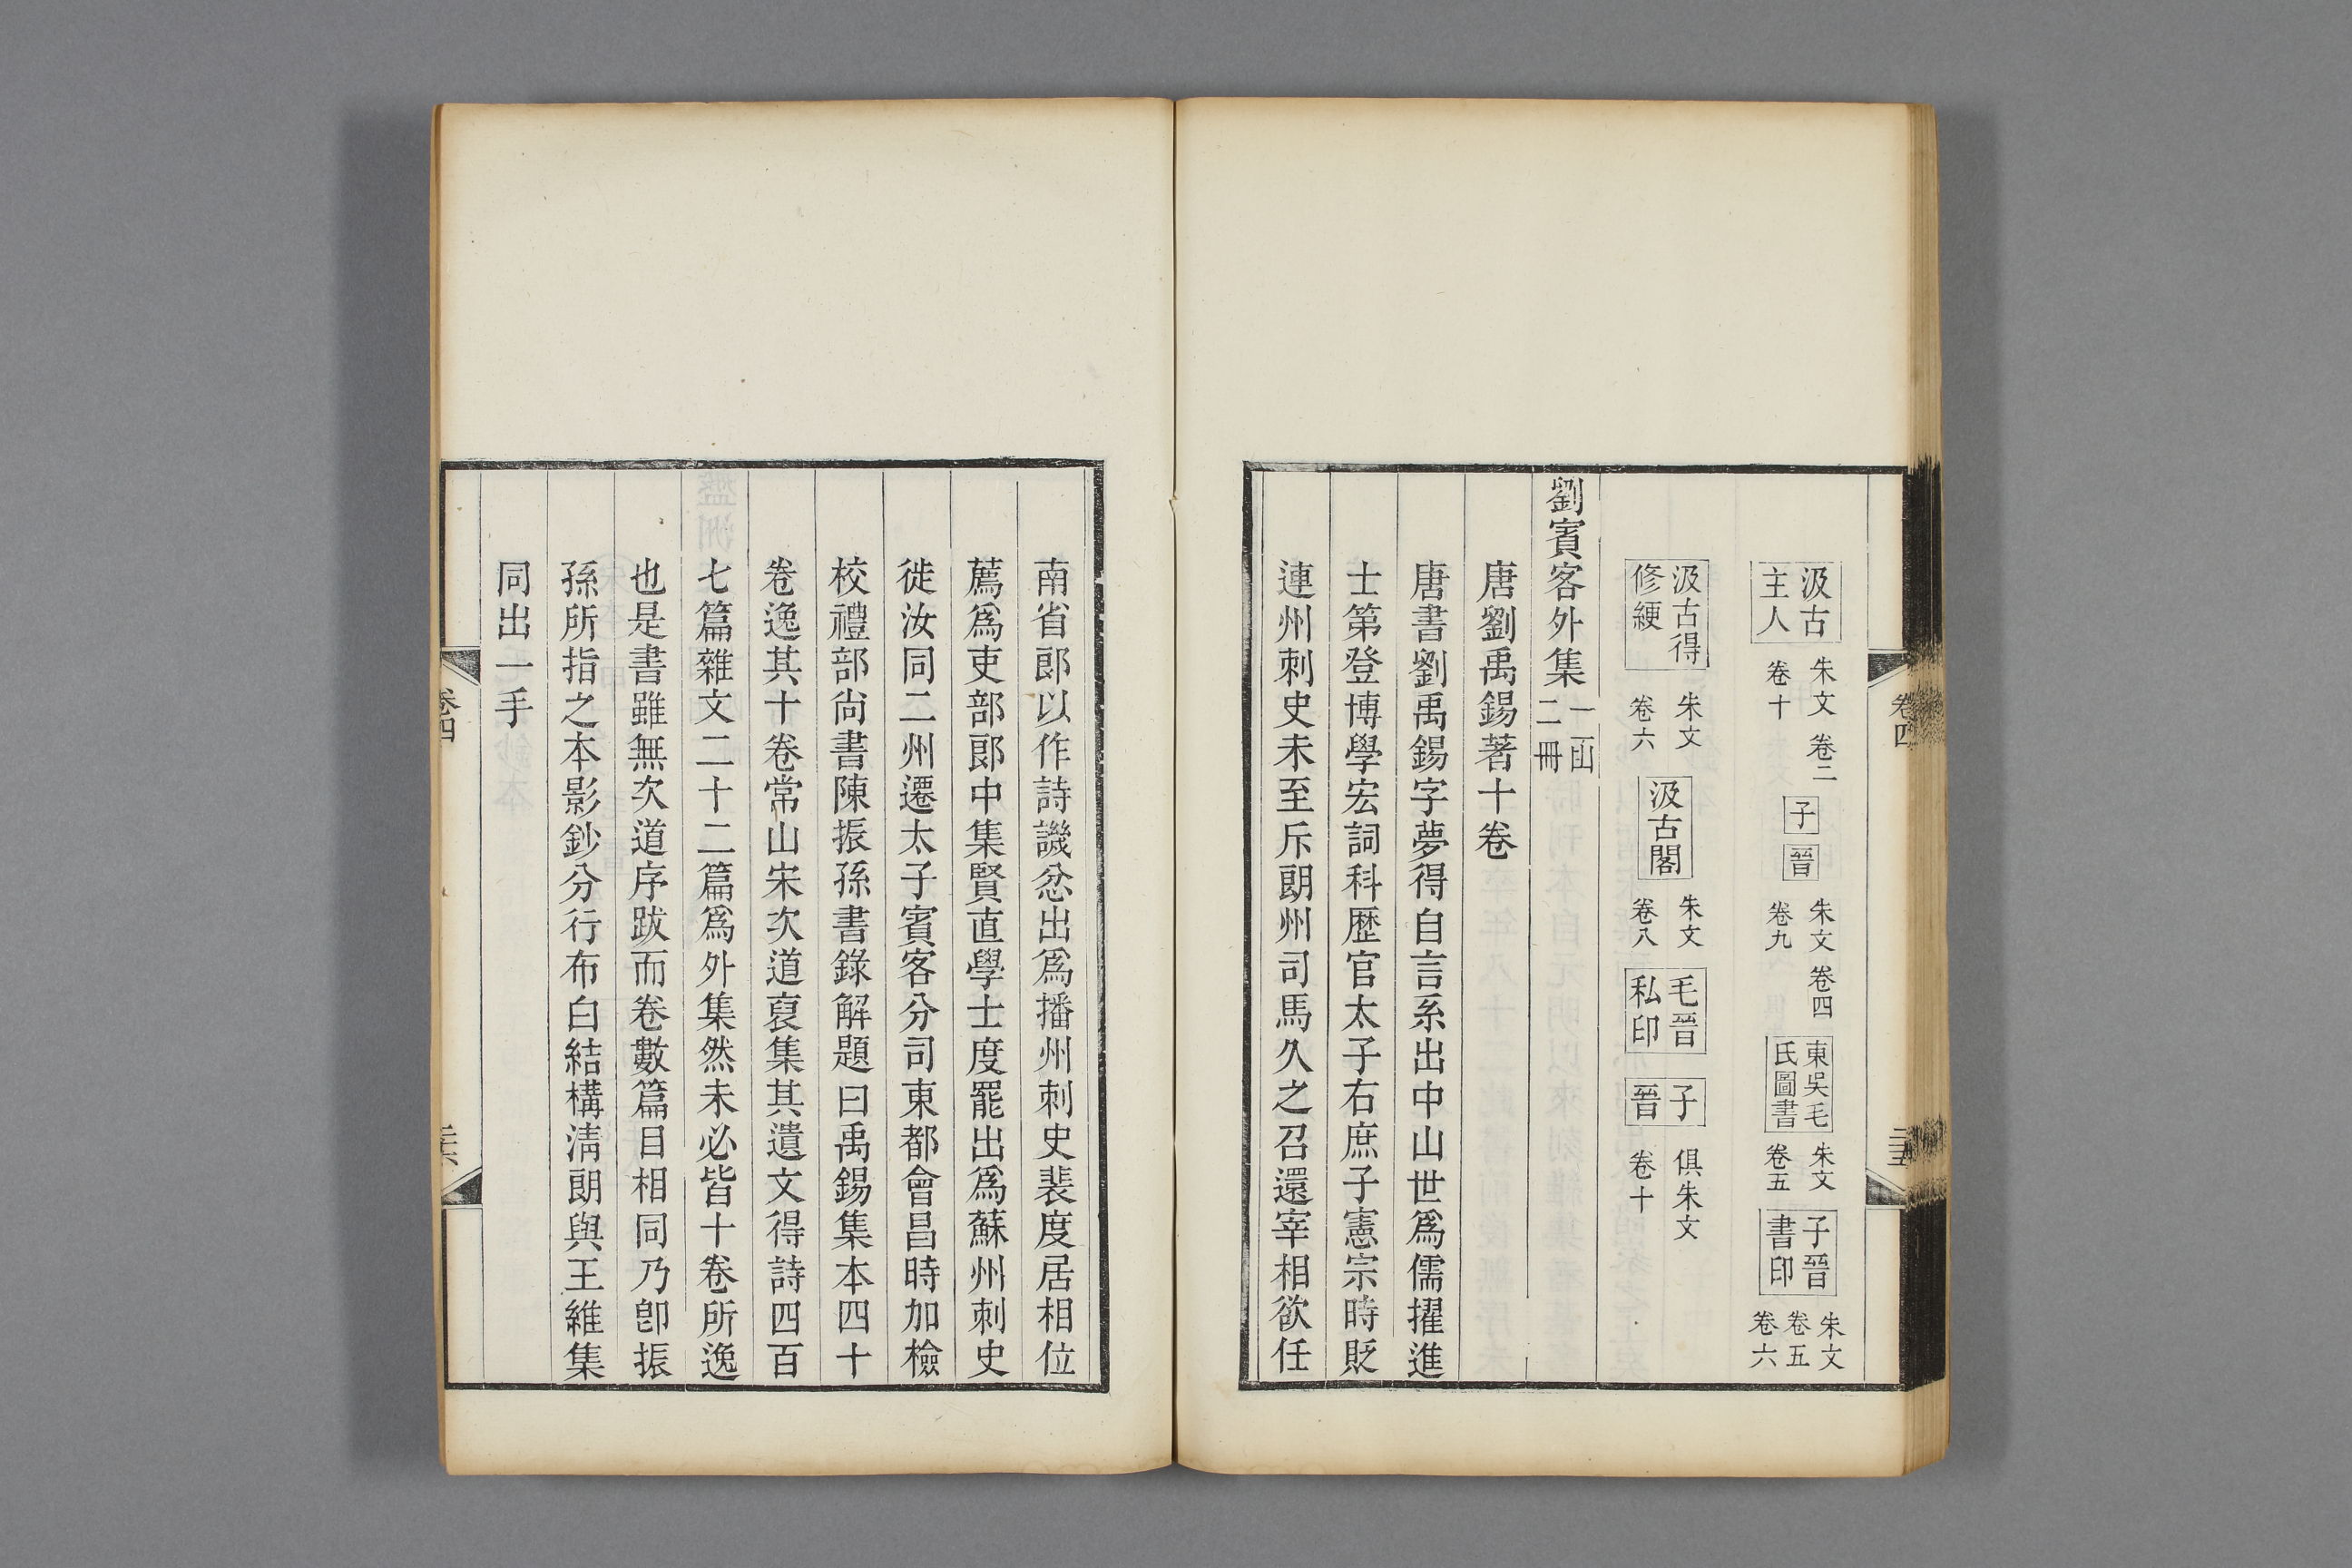 卷四
二十五
汲古主人 朱文 卷二 卷十 子 晉 朱文 卷四 卷九 東吳毛氏圖書 朱文 卷五 子晉書印 朱文 卷五 卷六
汲古得修綆 朱文 卷六 汲古閣 朱文 卷八 毛晉私印 子晉 俱朱文 卷十
劉賓客外集 一函二冊
唐劉禹錫著十卷
唐書劉禹錫字夢得自言系出中山世爲儒擢進
士第登博學宏詞科歷官太子右庶子憲宗時貶
連州刺史未至斥朗州司馬久之召還宰相欲任
南省郎以作詩譏忿出爲播州刺史裴度居相位
薦爲吏部郎中集賢直學士度罷出爲蘇州刺史
徙汝同二州遷太子賓客分司東都會昌時加檢
校禮部尙書陳振孫書錄解題曰禹錫集本四十
卷逸其十卷常山宋次道裒集其遺文得詩四百
七篇雜文二十二篇爲外集然未必皆十卷所逸
也是書雖無次道序跋而卷數篇目相同乃卽振
孫所指之本影鈔分行布白結構淸朗與王維集
同出一手
卷四